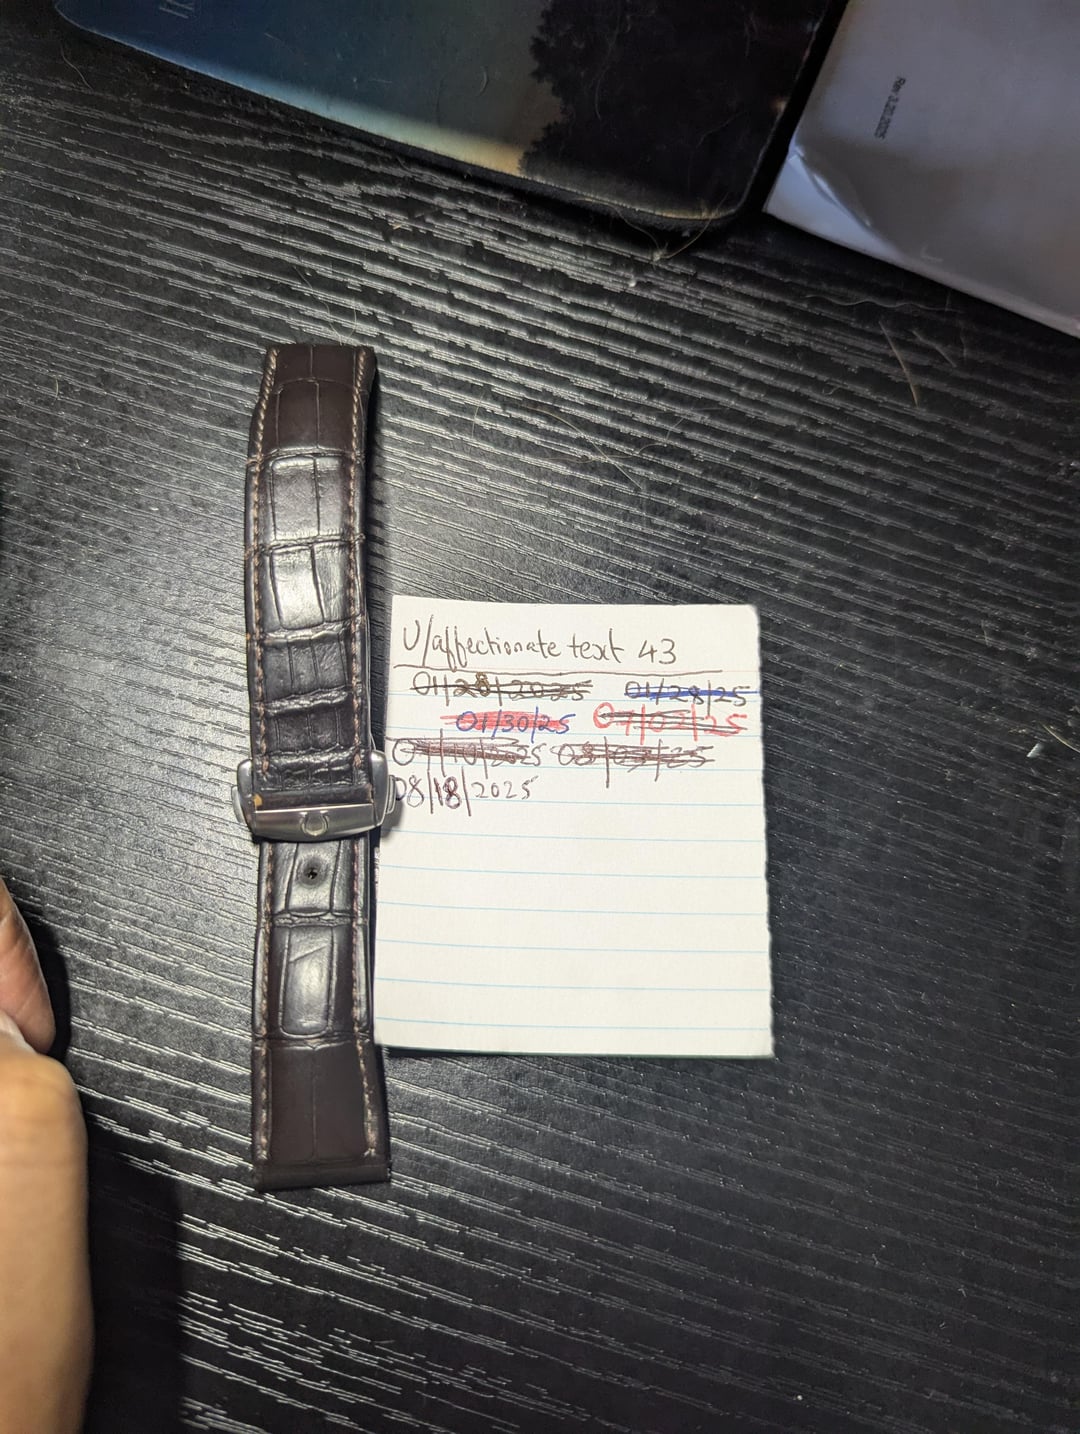 Rev 3.20.2025
U/affectionate text 43
01/28/2025 01/28/25
01/30/25 07/07/25
07/10/2025 08/09/25
08/18/2025